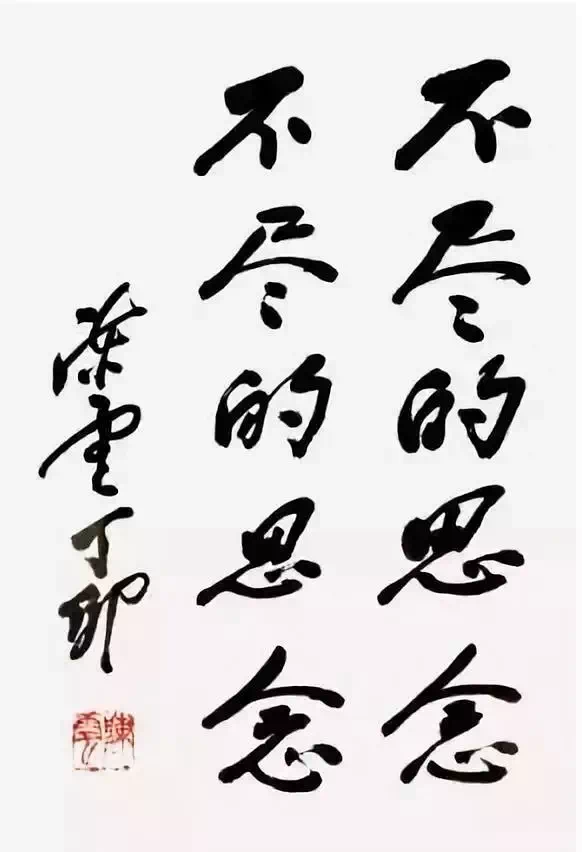 不尽的思念
不尽的思念
陈云丁卯
陳雲